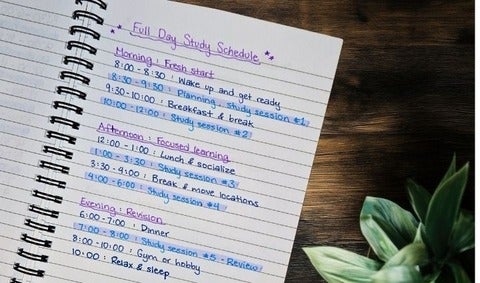 Full Day Study Schedule
Morning : Fresh start
8:00 - 8:30 : Wake up and get ready
8:30 - 9:30 : Planning, study session #1
9:30-10:00 : Breakfast & break
10:00 - 12:00 : Study session #2
Afternoon : Focused learning
12:00 - 1:00 : Lunch & socialize
1:00 - 3:30 : Study session #3
3:30 - 4:00 : Break & move locations
4:00 - 6:00 : Study session #4
Evening : Revision
6:00 - 7:00 : Dinner
7:00 - 8:00 : Study session #5 - Review
8:00 - 10:00 : Gym or hobby
10:00 : Relax & sleep